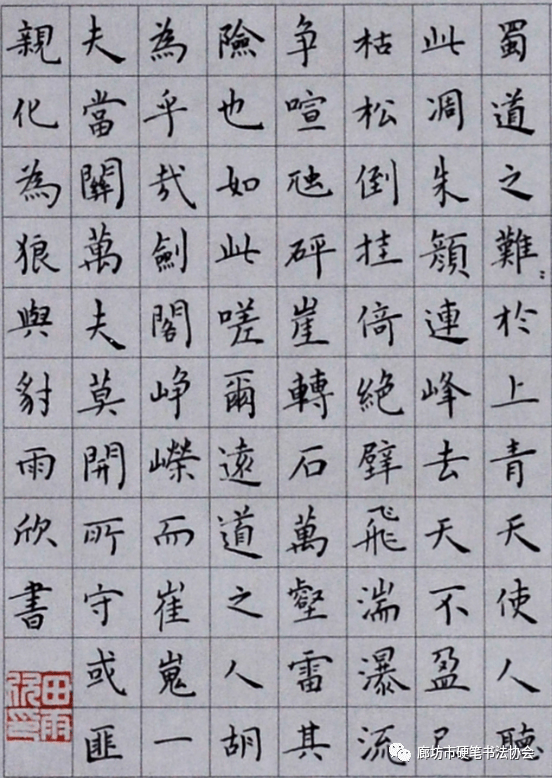 蜀道之難於上青天使人聽
此凋朱顏連峰去天不盈尺
枯松倒挂倚絶壁飛湍瀑流
争喧豗砯崖轉石萬壑雷其
險也如此嗟爾遠道之人胡
為乎哉劍閣崢嶸而崔嵬一
夫當關萬夫莫開所守或匪
親化為狼與豺雨欣書
田雨欣印
廊坊市硬笔书法协会